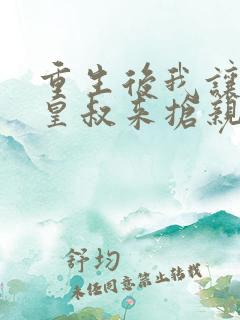 重生後我讓
皇叔來搶親
舒均
未經同意禁止轉載